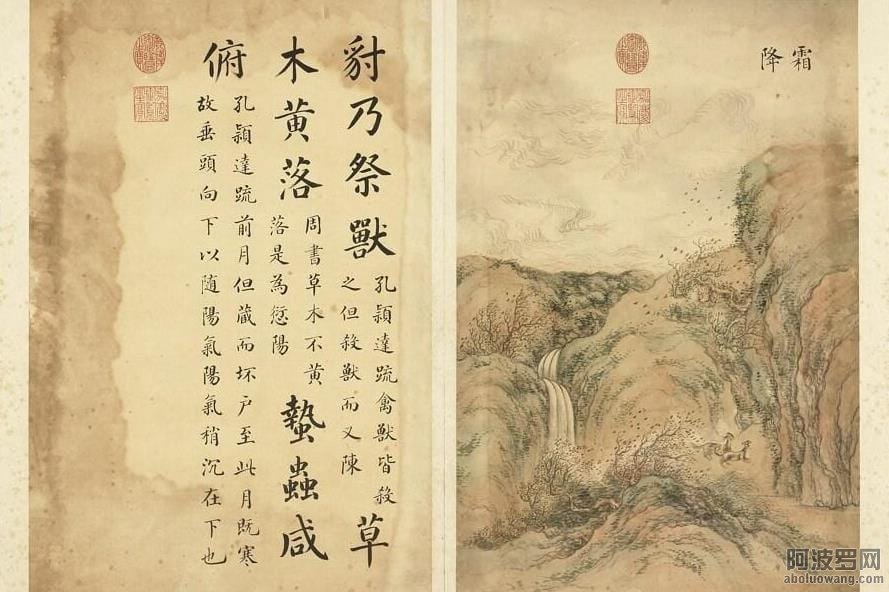 霜降
豺乃祭獸孔穎達疏禽獸皆殺之但殺獸而又陳草
木黄落周書草木不黄落是為愆陽蟄蟲咸
俯孔穎達疏前月但蔵而坏戶至此月既寒故垂頭向下以随陽氣陽氣稍沉在下也
阿波罗网
aboluowang.com